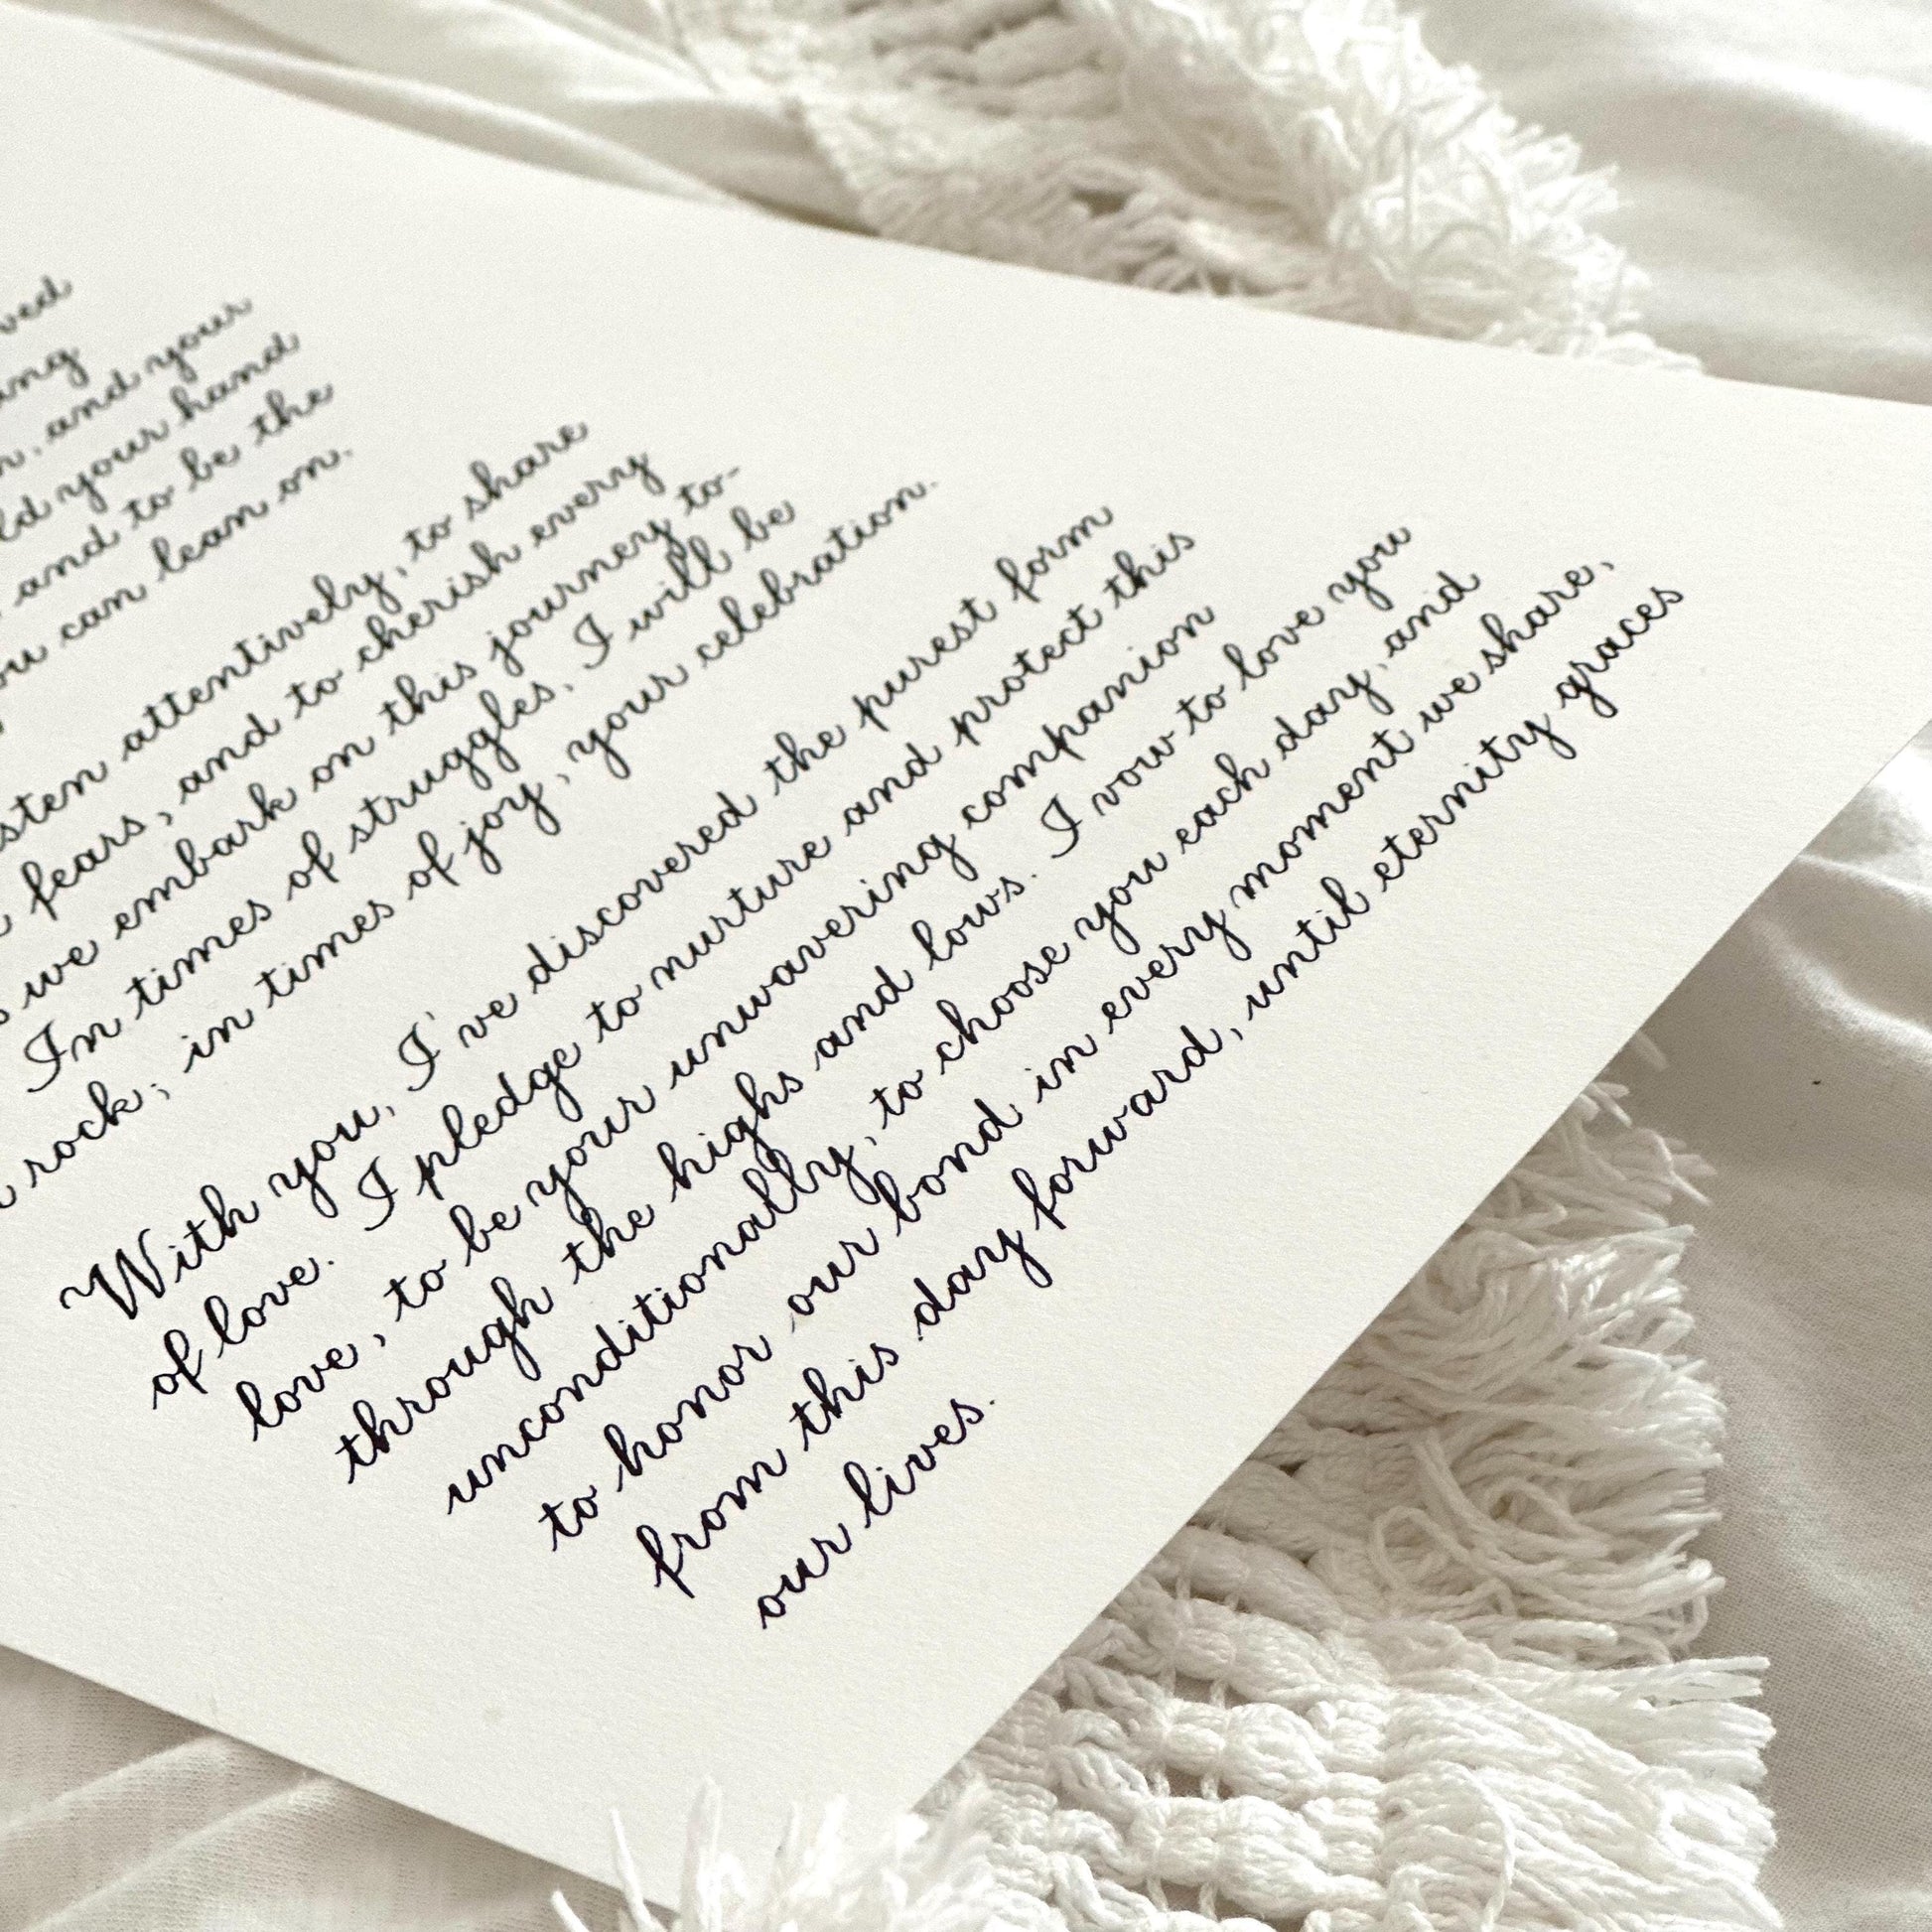 and your
your hand
and to be the
can lean on.
attentively, to share
fears, and to cherish every
we embark on this journey to-
In times of struggles, I will be
rock; in times of joy, your celebration.
With you, I've discovered the purest form
of love. I pledge to nurture and protect this
love, to be your unwavering companion
through the highs and lows. I vow to love you
unconditionally, to choose you each day, and
to honor our bond in every moment we share,
from this day forward, until eternity graces
our lives.